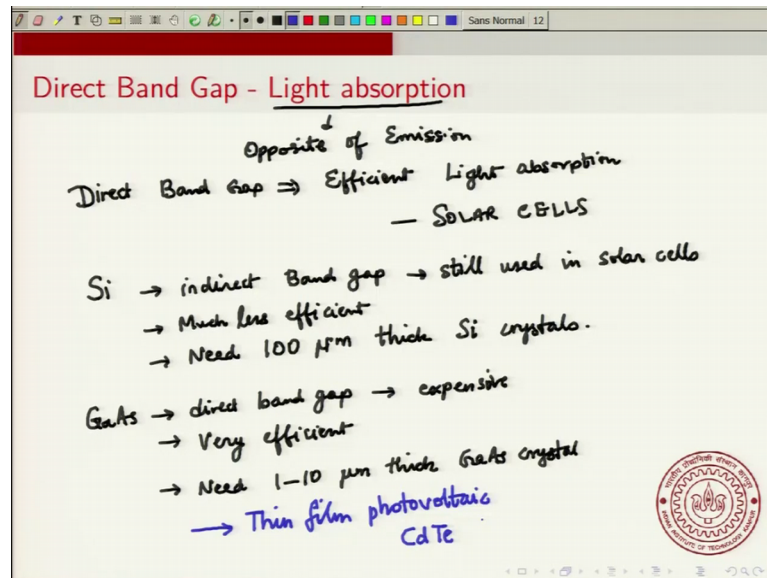 Sans Normal 12
Direct Band Gap - Light absorption
Opposite of Emission
Direct Band Gap ⇒ Efficient Light absorption
— SOLAR CELLS
Si → indirect Band gap → still used in solar cells
→ Much less efficient
→ Need 100 μm thick Si crystals.
GaAs → direct band gap → expensive
→ Very efficient
→ Need 1–10 μm thick GaAs crystal
→ Thin film photovoltaic
CdTe
भारतीय प्रौद्योगिकी संस्थान कानपुर
INDIAN INSTITUTE OF TECHNOLOGY KANPUR